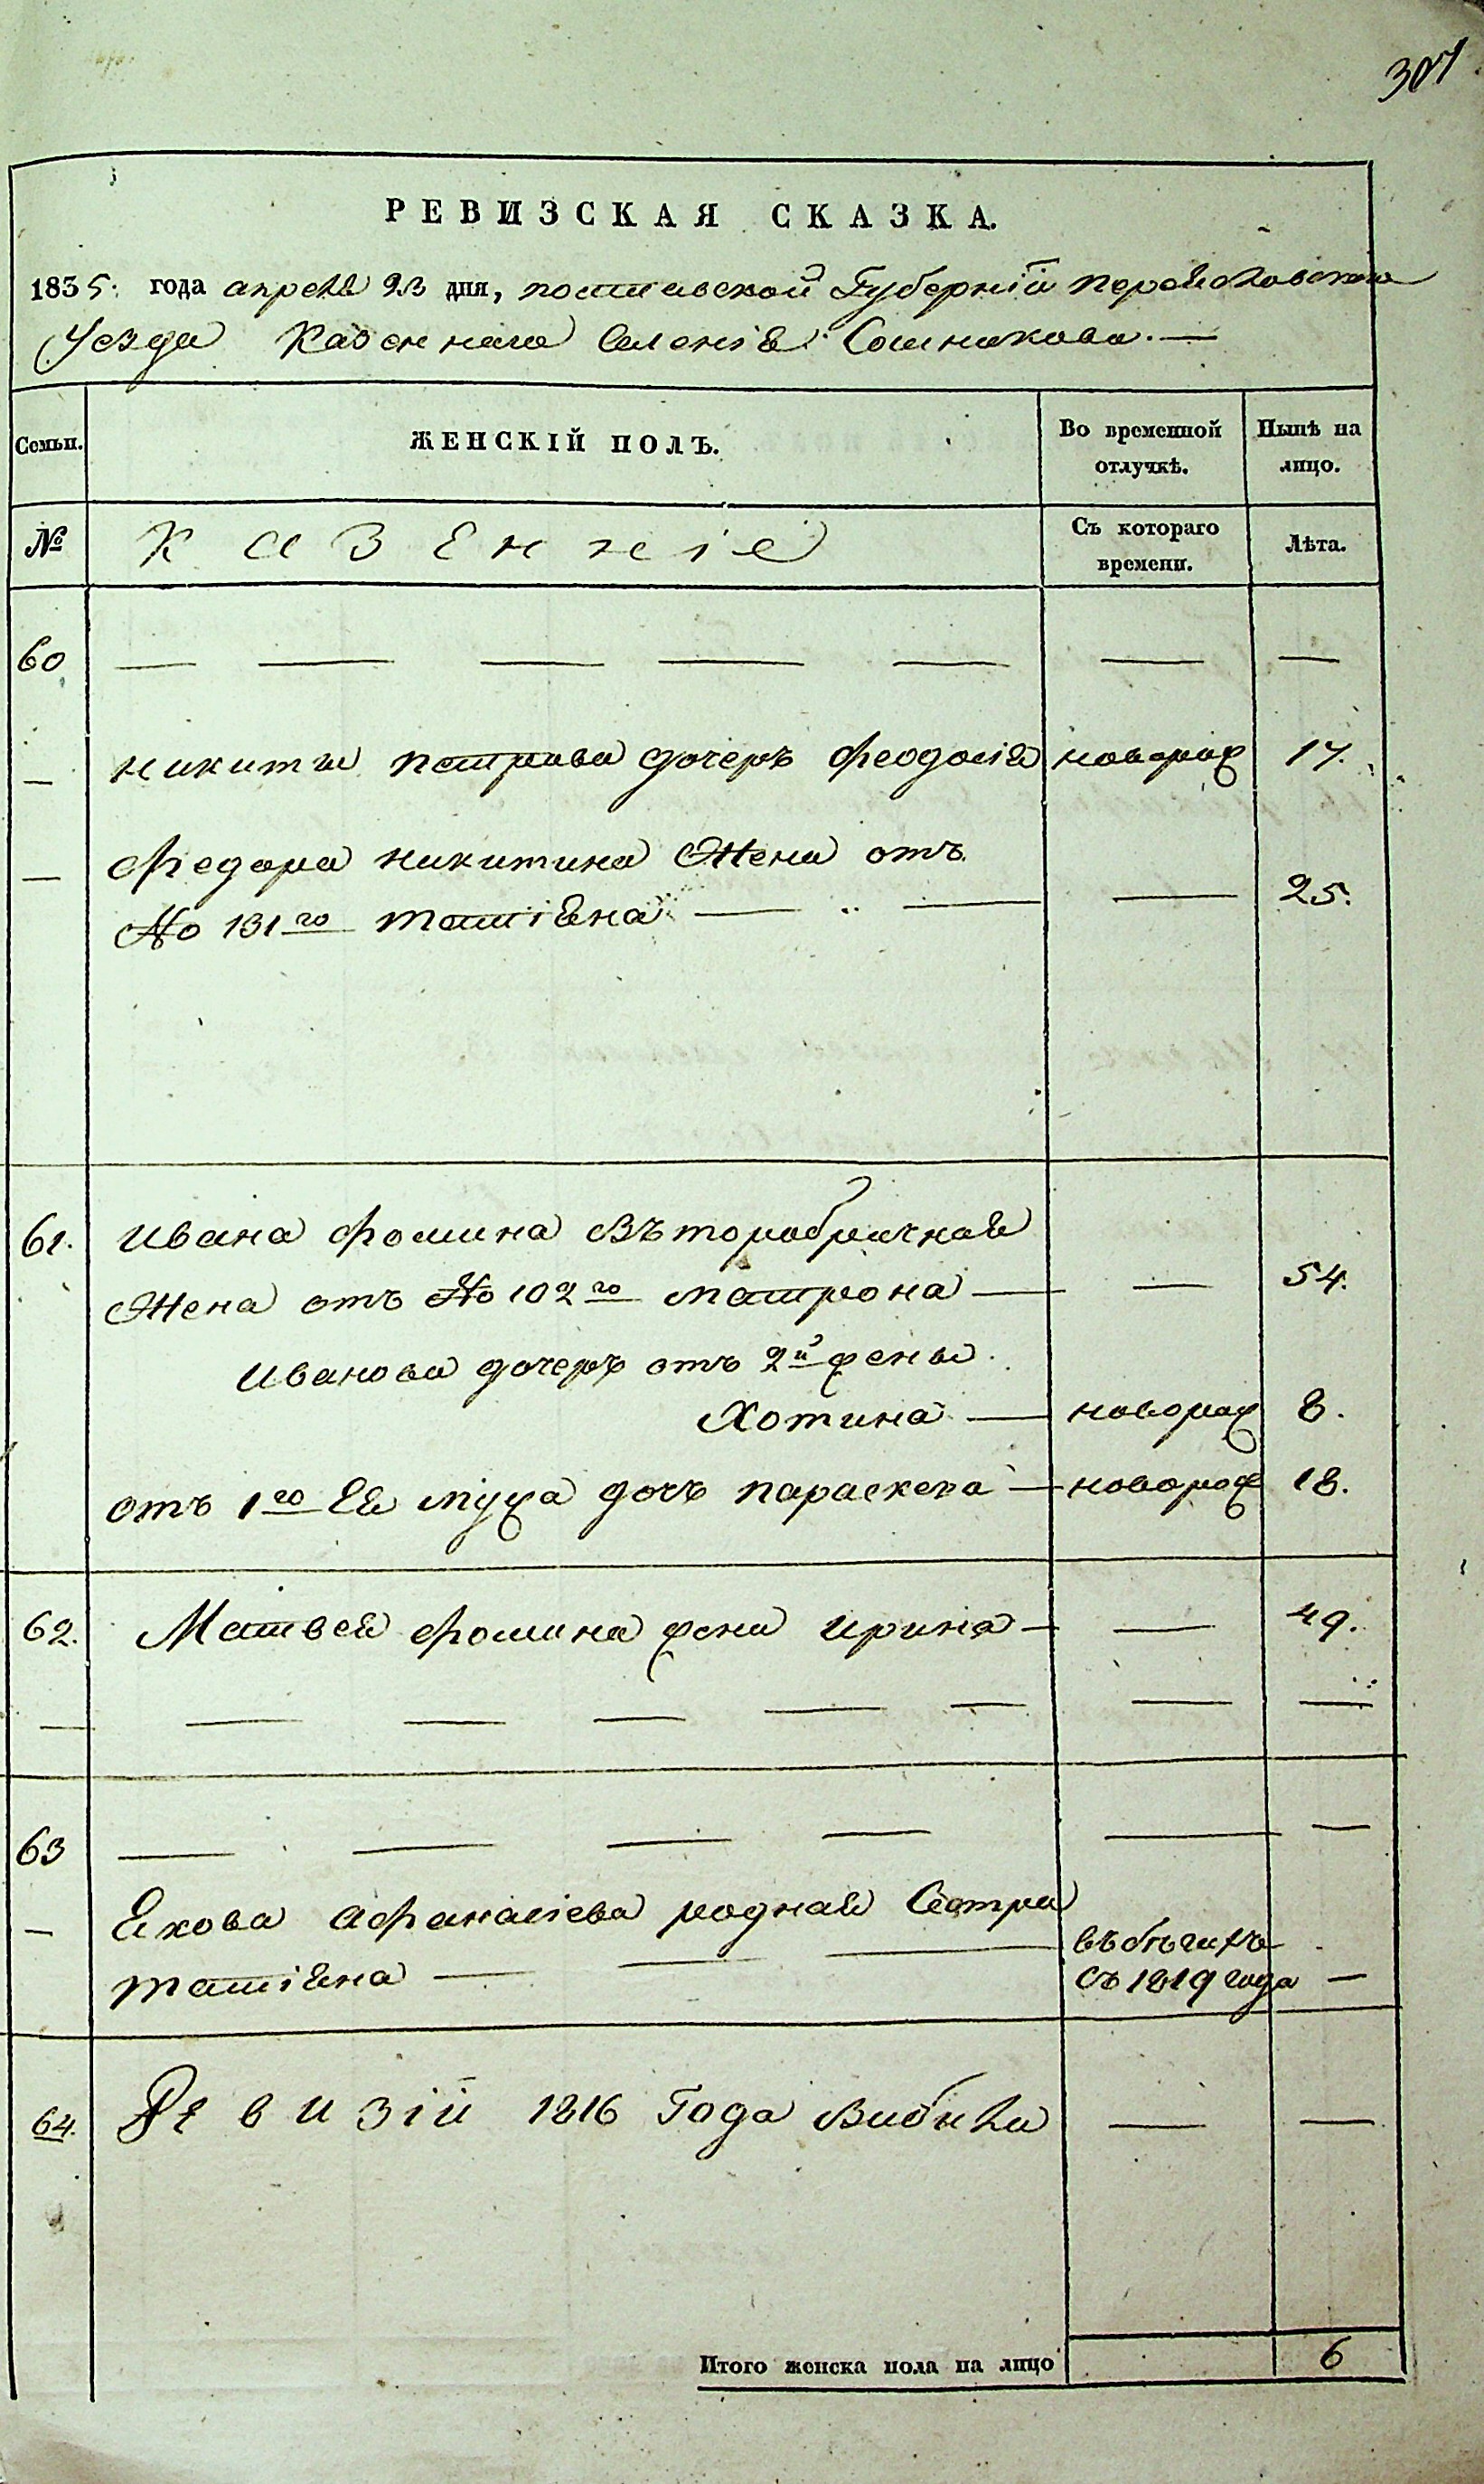 307
РЕВИЗСКАЯ СКАЗКА.
1835: года апреля 23 дня, полтавской Губернїи переясловскаго
Уезда Казеннаго Селенїя Сошникова.—
Семьи. ЖЕНСКІЙ ПОЛЪ. Во временной отлучкѣ. Нынѣ на лицо.
№ Казенніе Съ котораго времени. Лѣта.
60 — — — — — — —
— никиты петрова дочеръ феодосія новорож 17.
— Федора никитина Жена отъ
No 131го татіяна — — — 25.
61. ивана фомина Въторобрачная
Жена отъ No 102го матрона — — 54.
Иванова дочеръ отъ 2й жены
Хотина — новорож 8.
отъ 1го Ея мужа дочь параскева — новорож 18.
62. Матвея фомина жена ирина — — 49.
— — — — — — — —
63 — — — — — —
— Якова Афанасіева родная Сестра
татіяна — — — въ бѣгахъ съ 1819 года —
64. Ревизіи 1816 Года Вибили — —
Итого женска пола на лицо 6